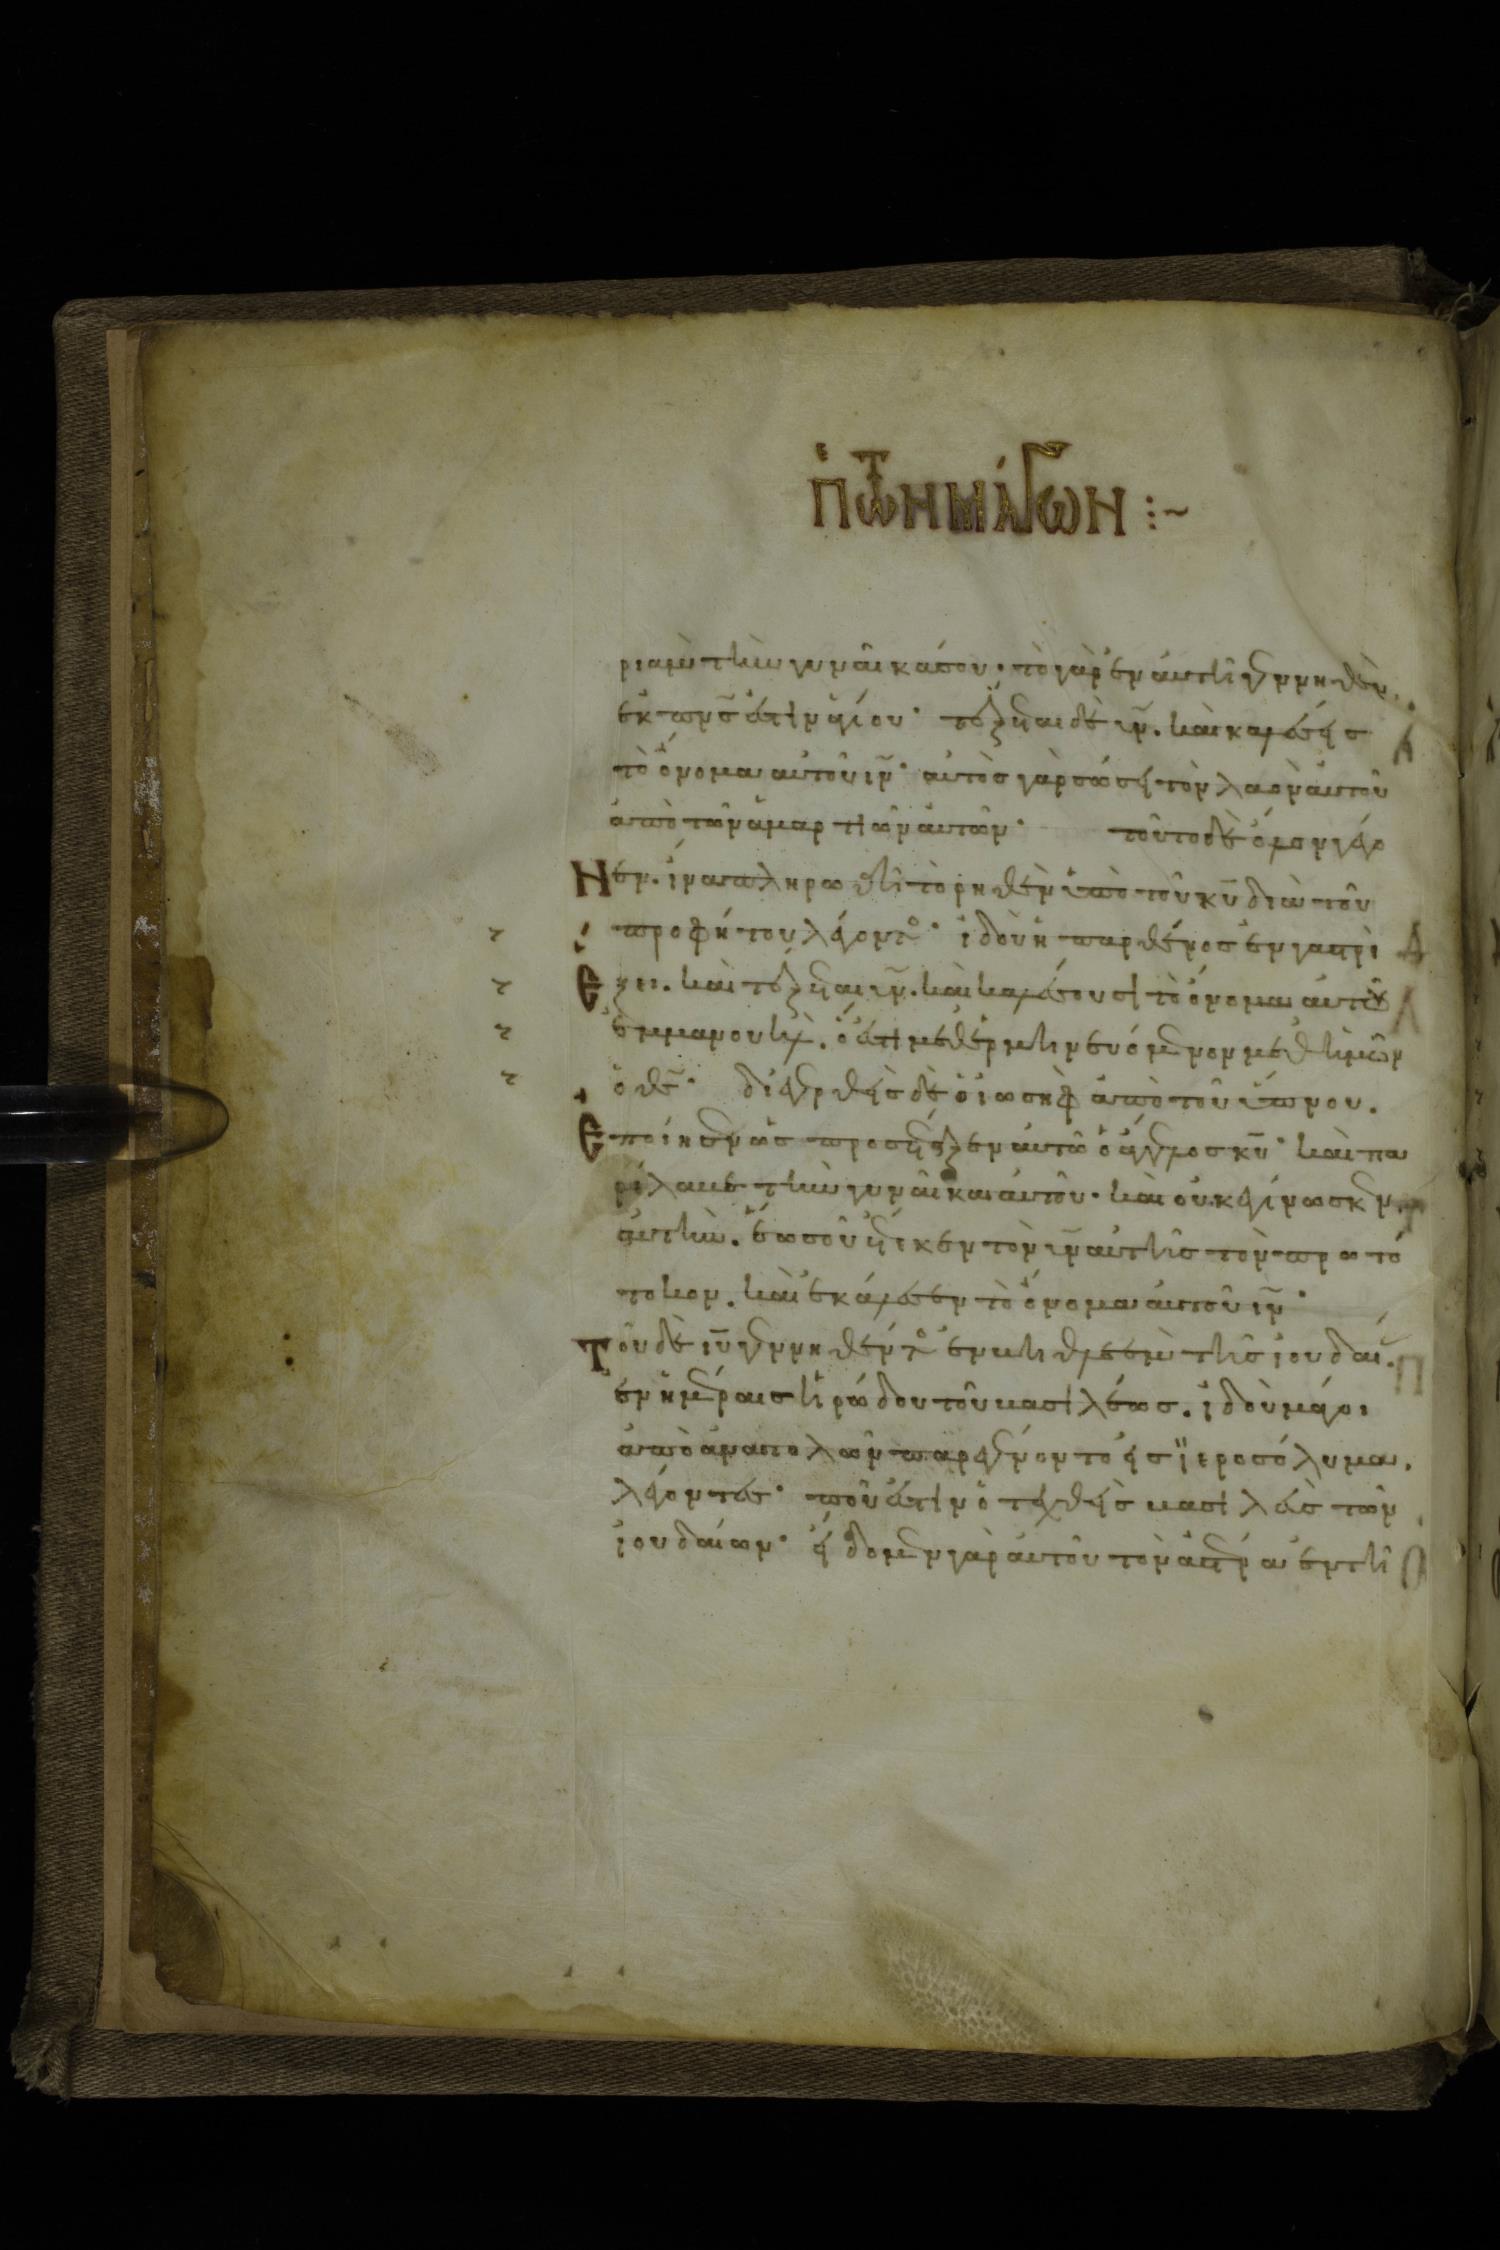 ἐπὶ τῶν μάγων :~
ριὰμ τὴν γυναῖκά σου· τὸ γὰρ ἐν αὐτῆ γεννηθὲν
ἐκ πνς ἐστὶν ἁγίου· τέξεται δὲ υν. καὶ καλέσεις
τὸ ὄνομα αὐτοῦ ιν· αὐτὸς γὰρ σώσει τὸν λαὸν αὐτοῦ
ἀπὸ τῶν ἁμαρτιῶν αὐτῶν· τοῦτο δὲ ὅλον γέγο
Νεν. ἵνα πληρωθῆ τὸ ρηθὲν ὑπὸ τοῦ κυ διὰ τοῦ
προφήτου λέγοντο· ἰδοὺ ἡ παρθένος ἐν γαστρὶ
Ἕξει. καὶ τέξεται υν. καὶ καλέσουσι τὸ ὄνομα αὐτοῦ
ἐμμανουήλ. ὅ ἐστι μεθερμηνευόμενον μεθ ἡμῶν
ὁ θς· διεγερθεὶς δὲ ὁ ἰωσὴφ ἀπὸ τοῦ ὕπνου.
Ἐποίησεν ὡς προσέταξεν αὐτῶ ὁ ἄγγελος κυ· καὶ πα
ρέλαβε τὴν γυναῖκα αὐτοῦ. καὶ οὐκ ἐγίνωσκεν
αὐτὴν. ἕως οὗ ἔτεκεν τὸν υν αὐτῆς τὸν πρωτό
τοκον. καὶ ἐκάλεσεν τὸ ὄνομα αὐτοῦ ιν·
Τοῦ δὲ ιυ γεννηθέντο ἐν βηθλεὲμ τῆς ἰουδαί.
ἐν ἡμέραις ἡρώδου τοῦ βασιλέως. ἰδοὺ μάγοι
ἀπὸ ἀνατολῶν παρεγένοντο εἰς ϊεροσόλυμα.
λέγοντες· ποῦ ἐστὶν ὁ τεχθεὶς βασιλεὺς τῶν
ἰουδαίων· εἴδομεν γὰρ αὐτοῦ τὸν ἀστέρα ἐν τῆ